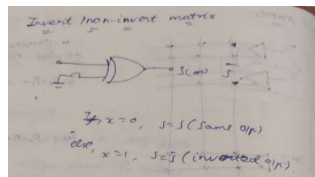 Invert / non-invert matrix
S(or) S̄
If, x=0, S=S (Same o/p)
else, x=1, S=S̄ (inverted o/p)